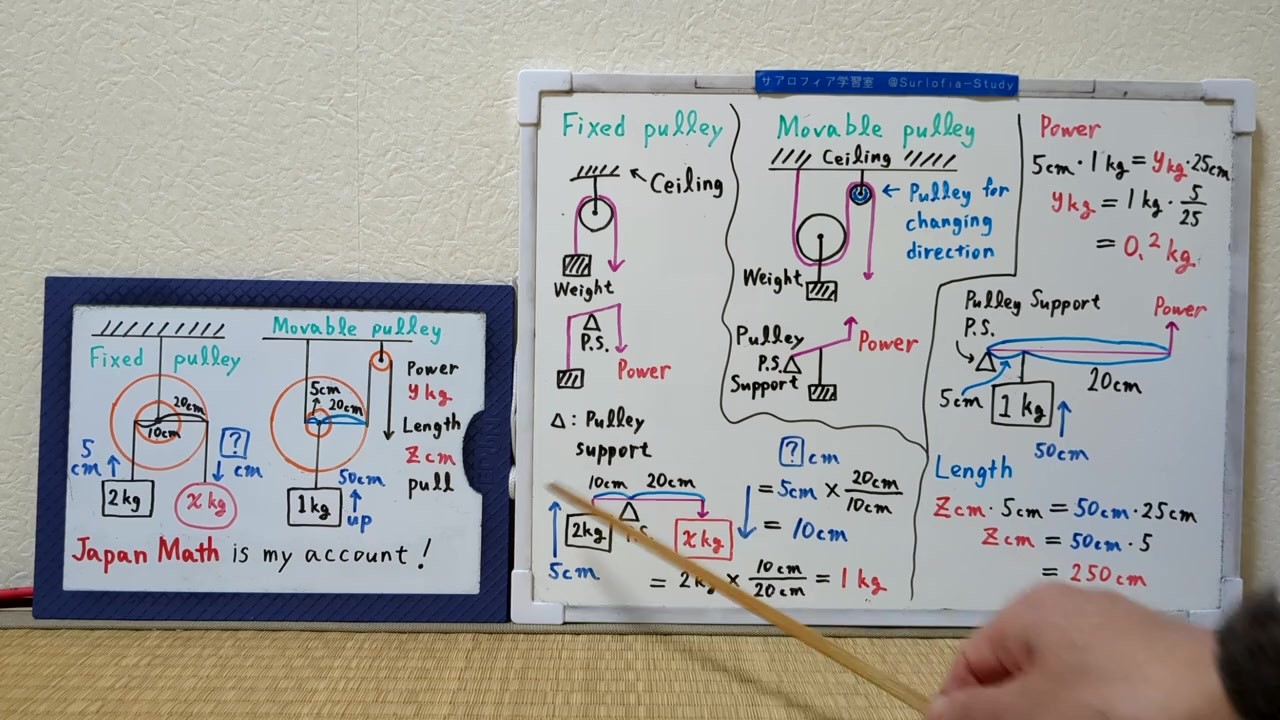 Fixed pulley
Movable pulley
20cm
10cm
5
cm
?
cm
2kg
x kg
5cm
20cm
1kg
50cm
up
Power
y kg
Length
Z cm
pull
Japan Math is my account!
サアロフィア学習室 @Surlofia-Study
Fixed pulley
Ceiling
Weight
P.S.
Power
△: Pulley
support
10cm 20cm
2kg
P.S.
x kg
5cm
= 2kg × 10cm/20cm = 1 kg
? cm
= 5cm × 20cm/10cm
= 10cm
Movable pulley
Ceiling
← Pulley for
changing
direction
Weight
Pulley
P.S.
Support
Power
Power
5cm・1kg = ykg・25cm
ykg = 1kg・5/25
= 0.2kg
Pulley Support
P.S.
Power
5cm
20cm
1kg
50cm
Length
Zcm・5cm = 50cm・25cm
Zcm = 50cm・5
= 250cm